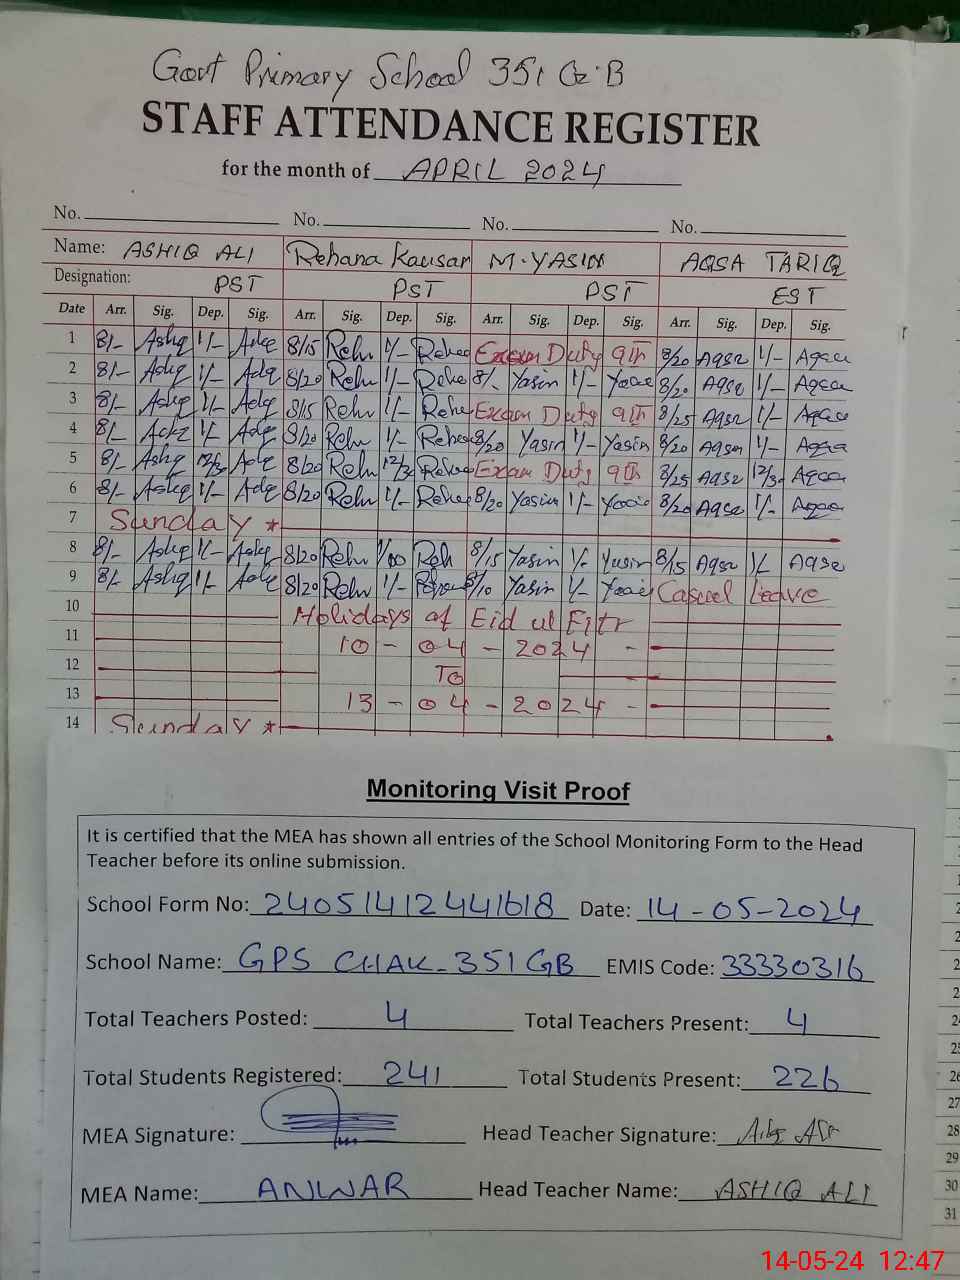 Govt Primary School 351 G.B
STAFF ATTENDANCE REGISTER
for the month of APRIL 2024
No. No. No. No.
Name: ASHIQ ALI Rehana Kausar M.YASIN AQSA TARIQ
Designation: PST PST PST EST
Date Arr. Sig. Dep. Sig. Arr. Sig. Dep. Sig. Arr. Sig. Dep. Sig. Arr. Sig. Dep. Sig.
1 8/- Ashq 1/- 8/15 Reh 1/- Exam Duty 9th 8/20 Aqsa 1/- Aqsa
2 8/- Ashq 1/- 8/20 Reh 1/- 8/- Yasin 1/- 8/20 Aqsa 1/- Aqsa
3 8/- Ashq 1/- 8/15 Reh 1/- Exam Duty 9th 8/25 Aqsa 1/- Aqsa
4 8/- 1/- 8/20 Reh 1/- 8/20 Yasin 1/- Yasin 8/20 Aqsa 1/- Aqsa
5 8/- Ashq 12/30 8/20 Reh 12/30 Exam Duty 9th 8/25 Aqsa 12/30 Aqsa
6 8/- Ashq 1/- 8/20 Reh 1/- 8/20 Yasin 1/- 8/20 Aqsa 1/- Aqsa
7 Sunday *
8 8/- Ashq 1/- Ashq 8/20 Reh 1/00 Reh 8/15 Yasin 1/- Yasin 8/15 Aqsa 1/- Aqsa
9 8/- Ashq 1/- 8/20 Reh 1/- 8/10 Yasin 1/- Casual Leave
10 Holidays of Eid ul Fitr
11 10 - 04 - 2024 -
12 TO
13 13 - 04 - 2024 -
14 Sunday *
Monitoring Visit Proof
It is certified that the MEA has shown all entries of the School Monitoring Form to the Head
Teacher before its online submission.
School Form No: 24051412441618 Date: 14-05-2024
School Name: GPS CHAK-351 GB EMIS Code: 33330316
Total Teachers Posted: 4 Total Teachers Present: 4
Total Students Registered: 241 Total Students Present: 226
MEA Signature: Head Teacher Signature:
MEA Name: ANWAR Head Teacher Name: ASHIQ ALI
24
25
26
27
28
29
30
31
14-05-24 12:47